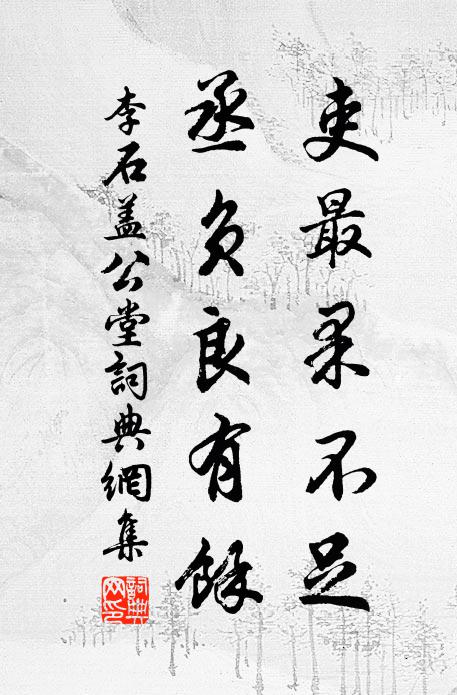 吏最果不足
丞負良有餘
李石蓋公堂詞典網集
詞典網印